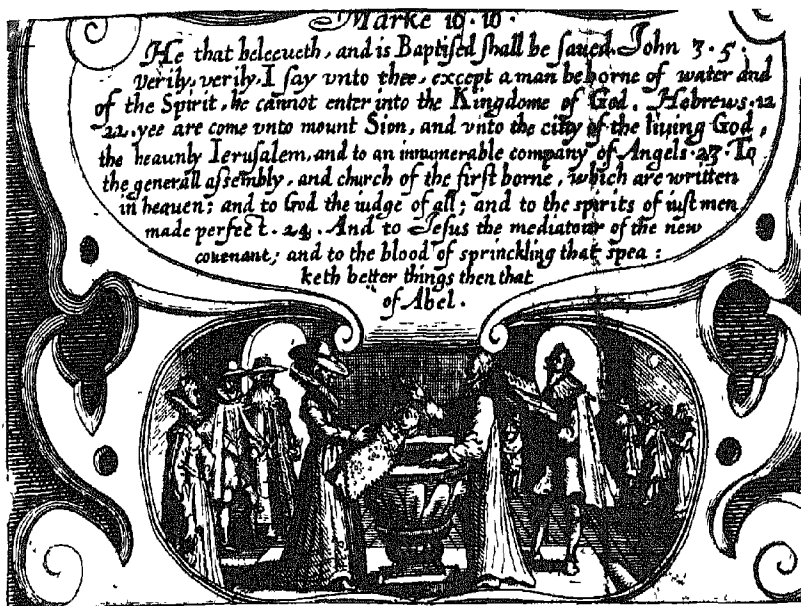 Marke 16. 16.
He that beleeueth, and is Baptised shall be saued. John 3. 5.
verily, verily, I say vnto thee, except a man be borne of water and
of the Spirit, he cannot enter into the Kingdome of God. Hebrews. 12
22. yee are come vnto mount Sion, and vnto the citty of the liuing God,
the heaunly Ierusalem, and to an innumerable company of Angels. 23. To
the generall assembly, and church of the first borne, which are written
in heauen; and to God the iudge of all; and to the spirits of iust men
made perfect. 24. And to Jesus the mediatour of the new
couenant; and to the blood of sprinckling that spea:
keth better things then that
of Abel.